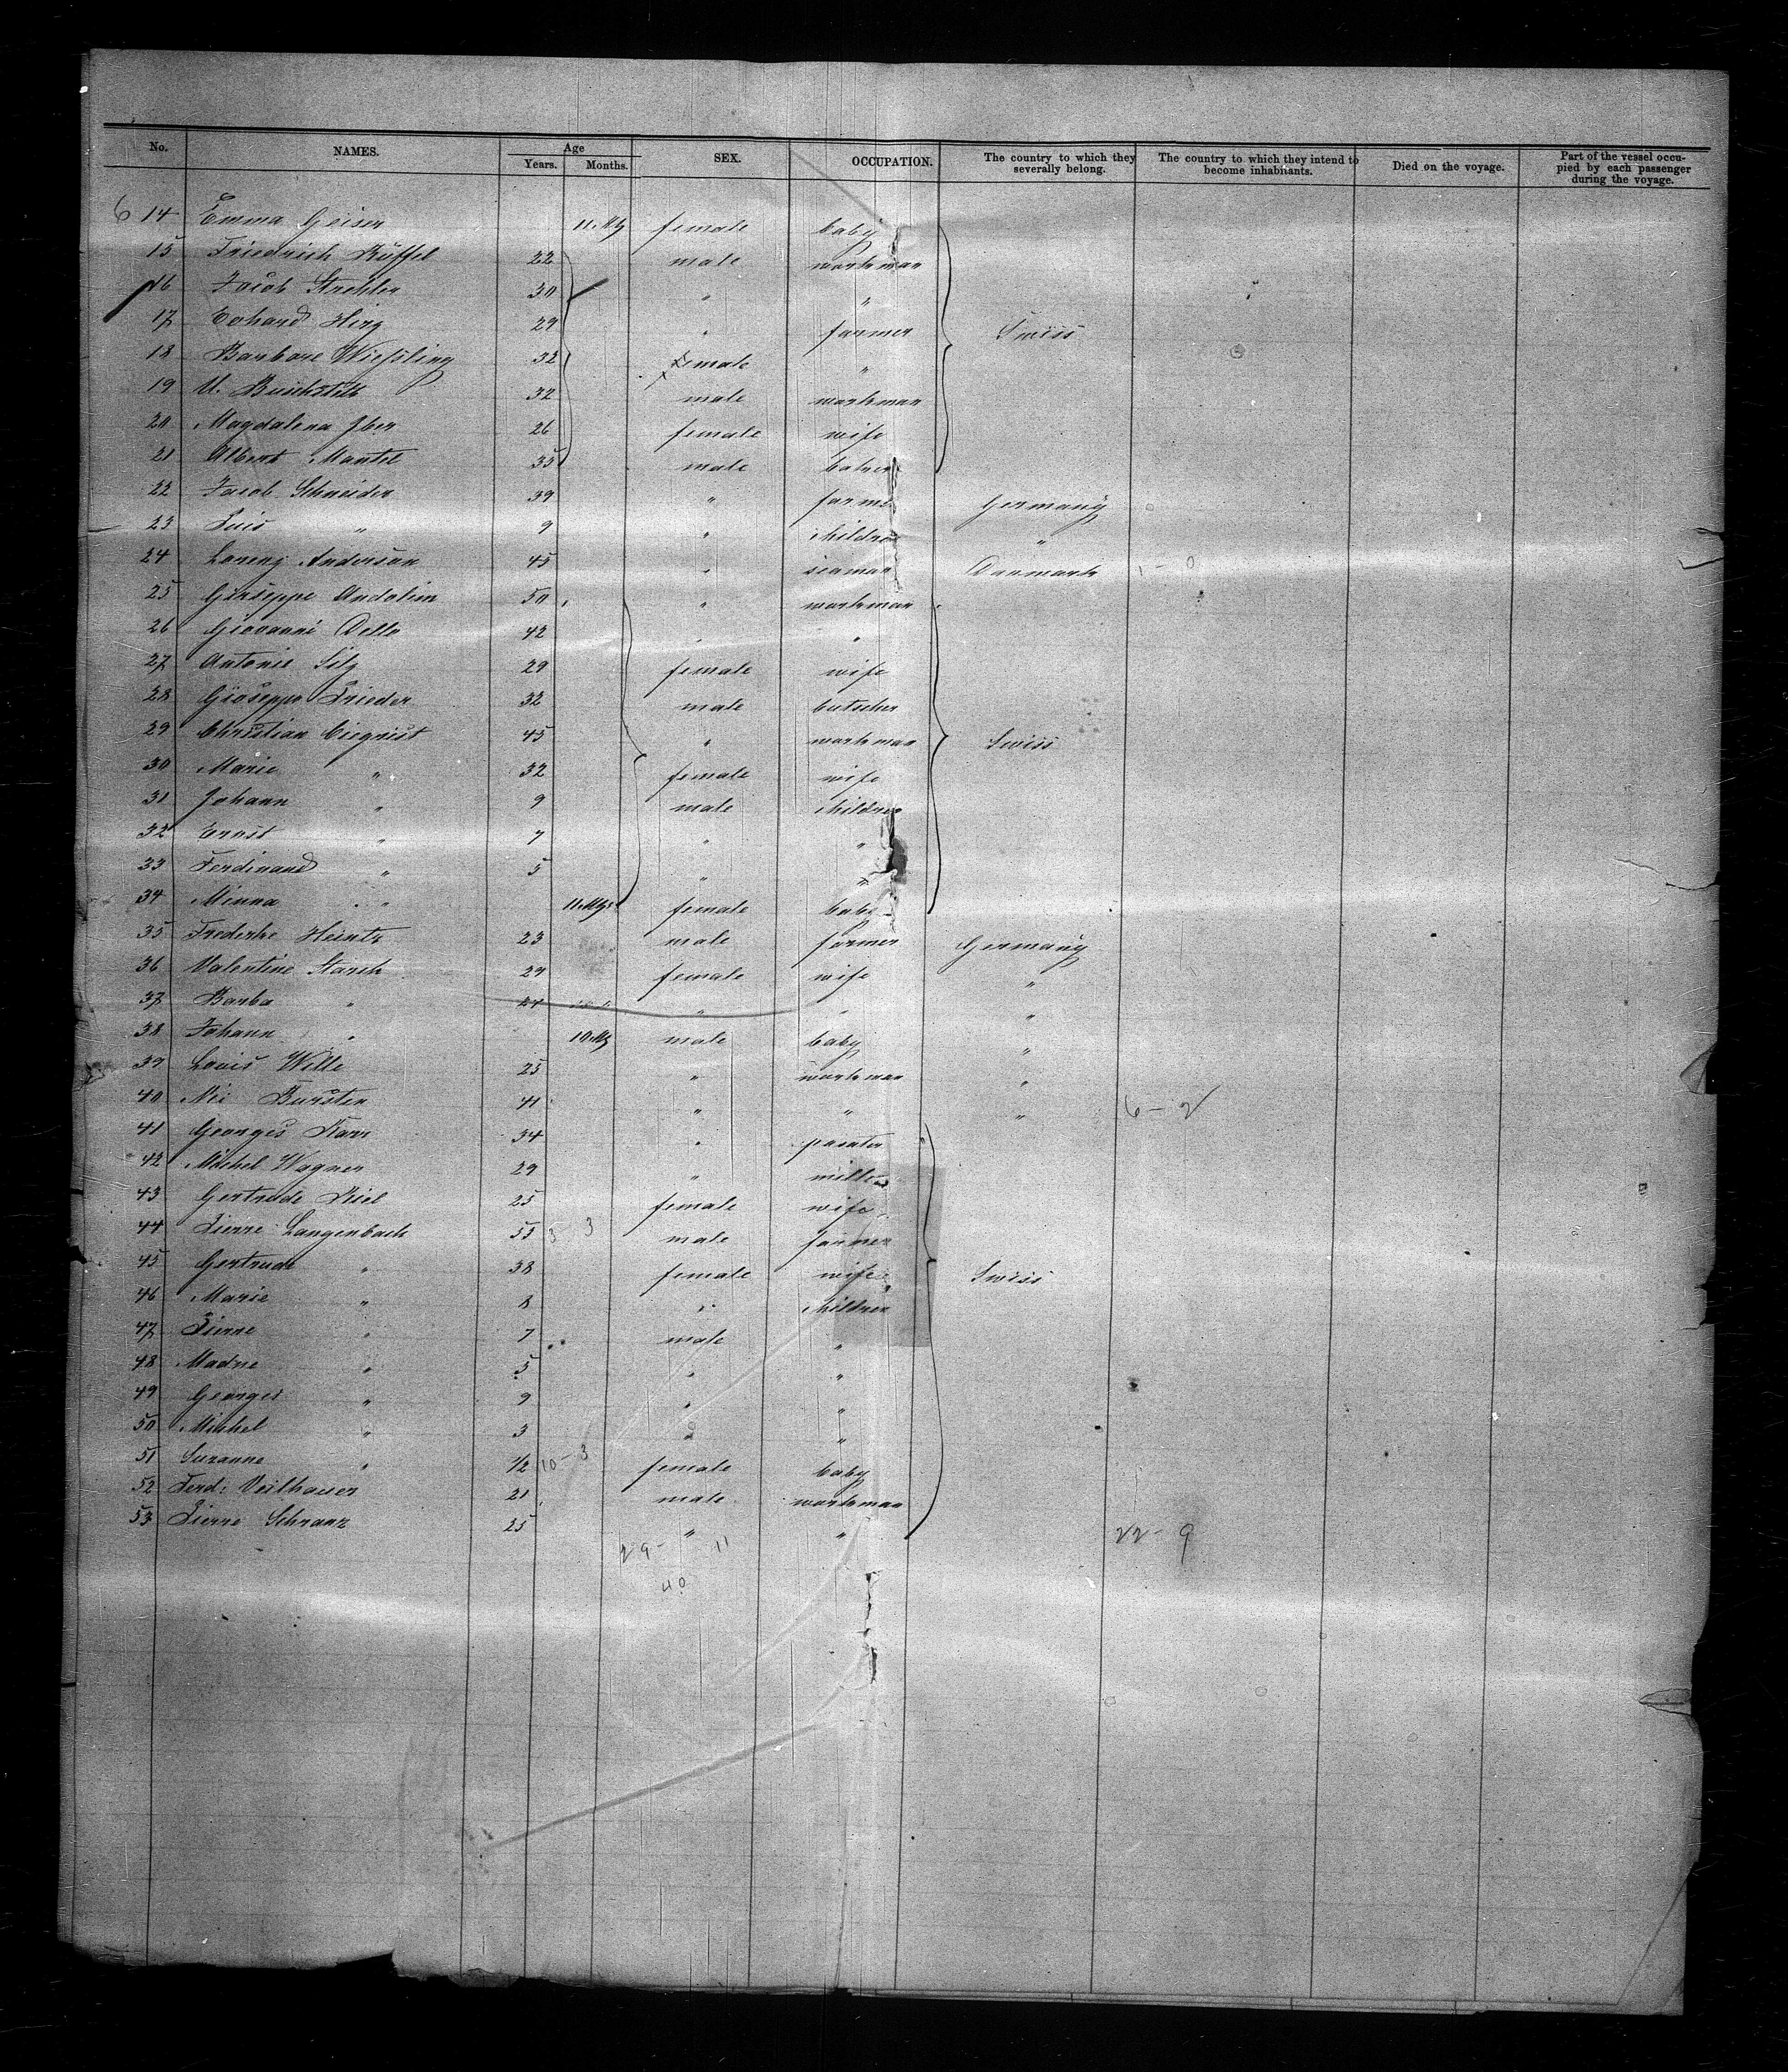 No. NAMES. Age Years. Months. SEX. OCCUPATION. The country to which they severally belong. The country to which they intend to become inhabitants. Died on the voyage. Part of the vessel occupied by each passenger during the voyage.
6 14 Emma Geiser 11. Mts female baby
15 Friedrich Büffel 22 male workman
16 Jacob Strehler 30 " "
17 Eohard Hirz 29 " farmer Swiss
18 Barbara Wießling 32 female "
19 U. 32 male workman
20 Magdalena Iber 26 female wife
21 Albert Mantel 35 male baker
22 Jacob Schneider 39 " farmer Germany
23 Luis " 9 " children "
24 Lorenz Anderson 45 " seaman Danmark 1 - 0
25 Giuseppe Andolim 50 " workman
26 Giovanni Dello 42 " "
27 Antonie Silz 29 female wife
28 Gioseppe Frieder 32 male butscher
29 Christian Ciegrist 45 " workman Swiss
30 Marie " 32 female wife
31 Johann " 9 male children
32 Ernst " 7 " "
33 Ferdinand " 5 " "
34 Minna " 11. Mts female baby
35 Frederke Heintz 23 male farmer Germany
36 Valentine Starck 29 female wife "
37 Barba " 24 " " "
38 Johann " 10 Mts male baby "
39 Louis Wille 25 " workman "
40 Nic Bursten 41 " " " 6 - 2
41 Georges Karr 34 "
42 Michel Wagner 29 " miller
43 Gertrude Kiel 25 female wife
44 Pierre Langenbach 55 3 3 male farmer
45 Gertrude " 38 female wife Swiss
46 Marie " 8 " children
47 Pierre " 7 male "
48 Madne " 5 " "
49 Georges " 9 " "
50 Michel " 3 " "
51 Suzanne " 1/2 10 - 3 female baby
52 Ferd: Veilhauer 21 male workman
53 Pierre Schranz 25 " "
29 - 11 22 - 9
40